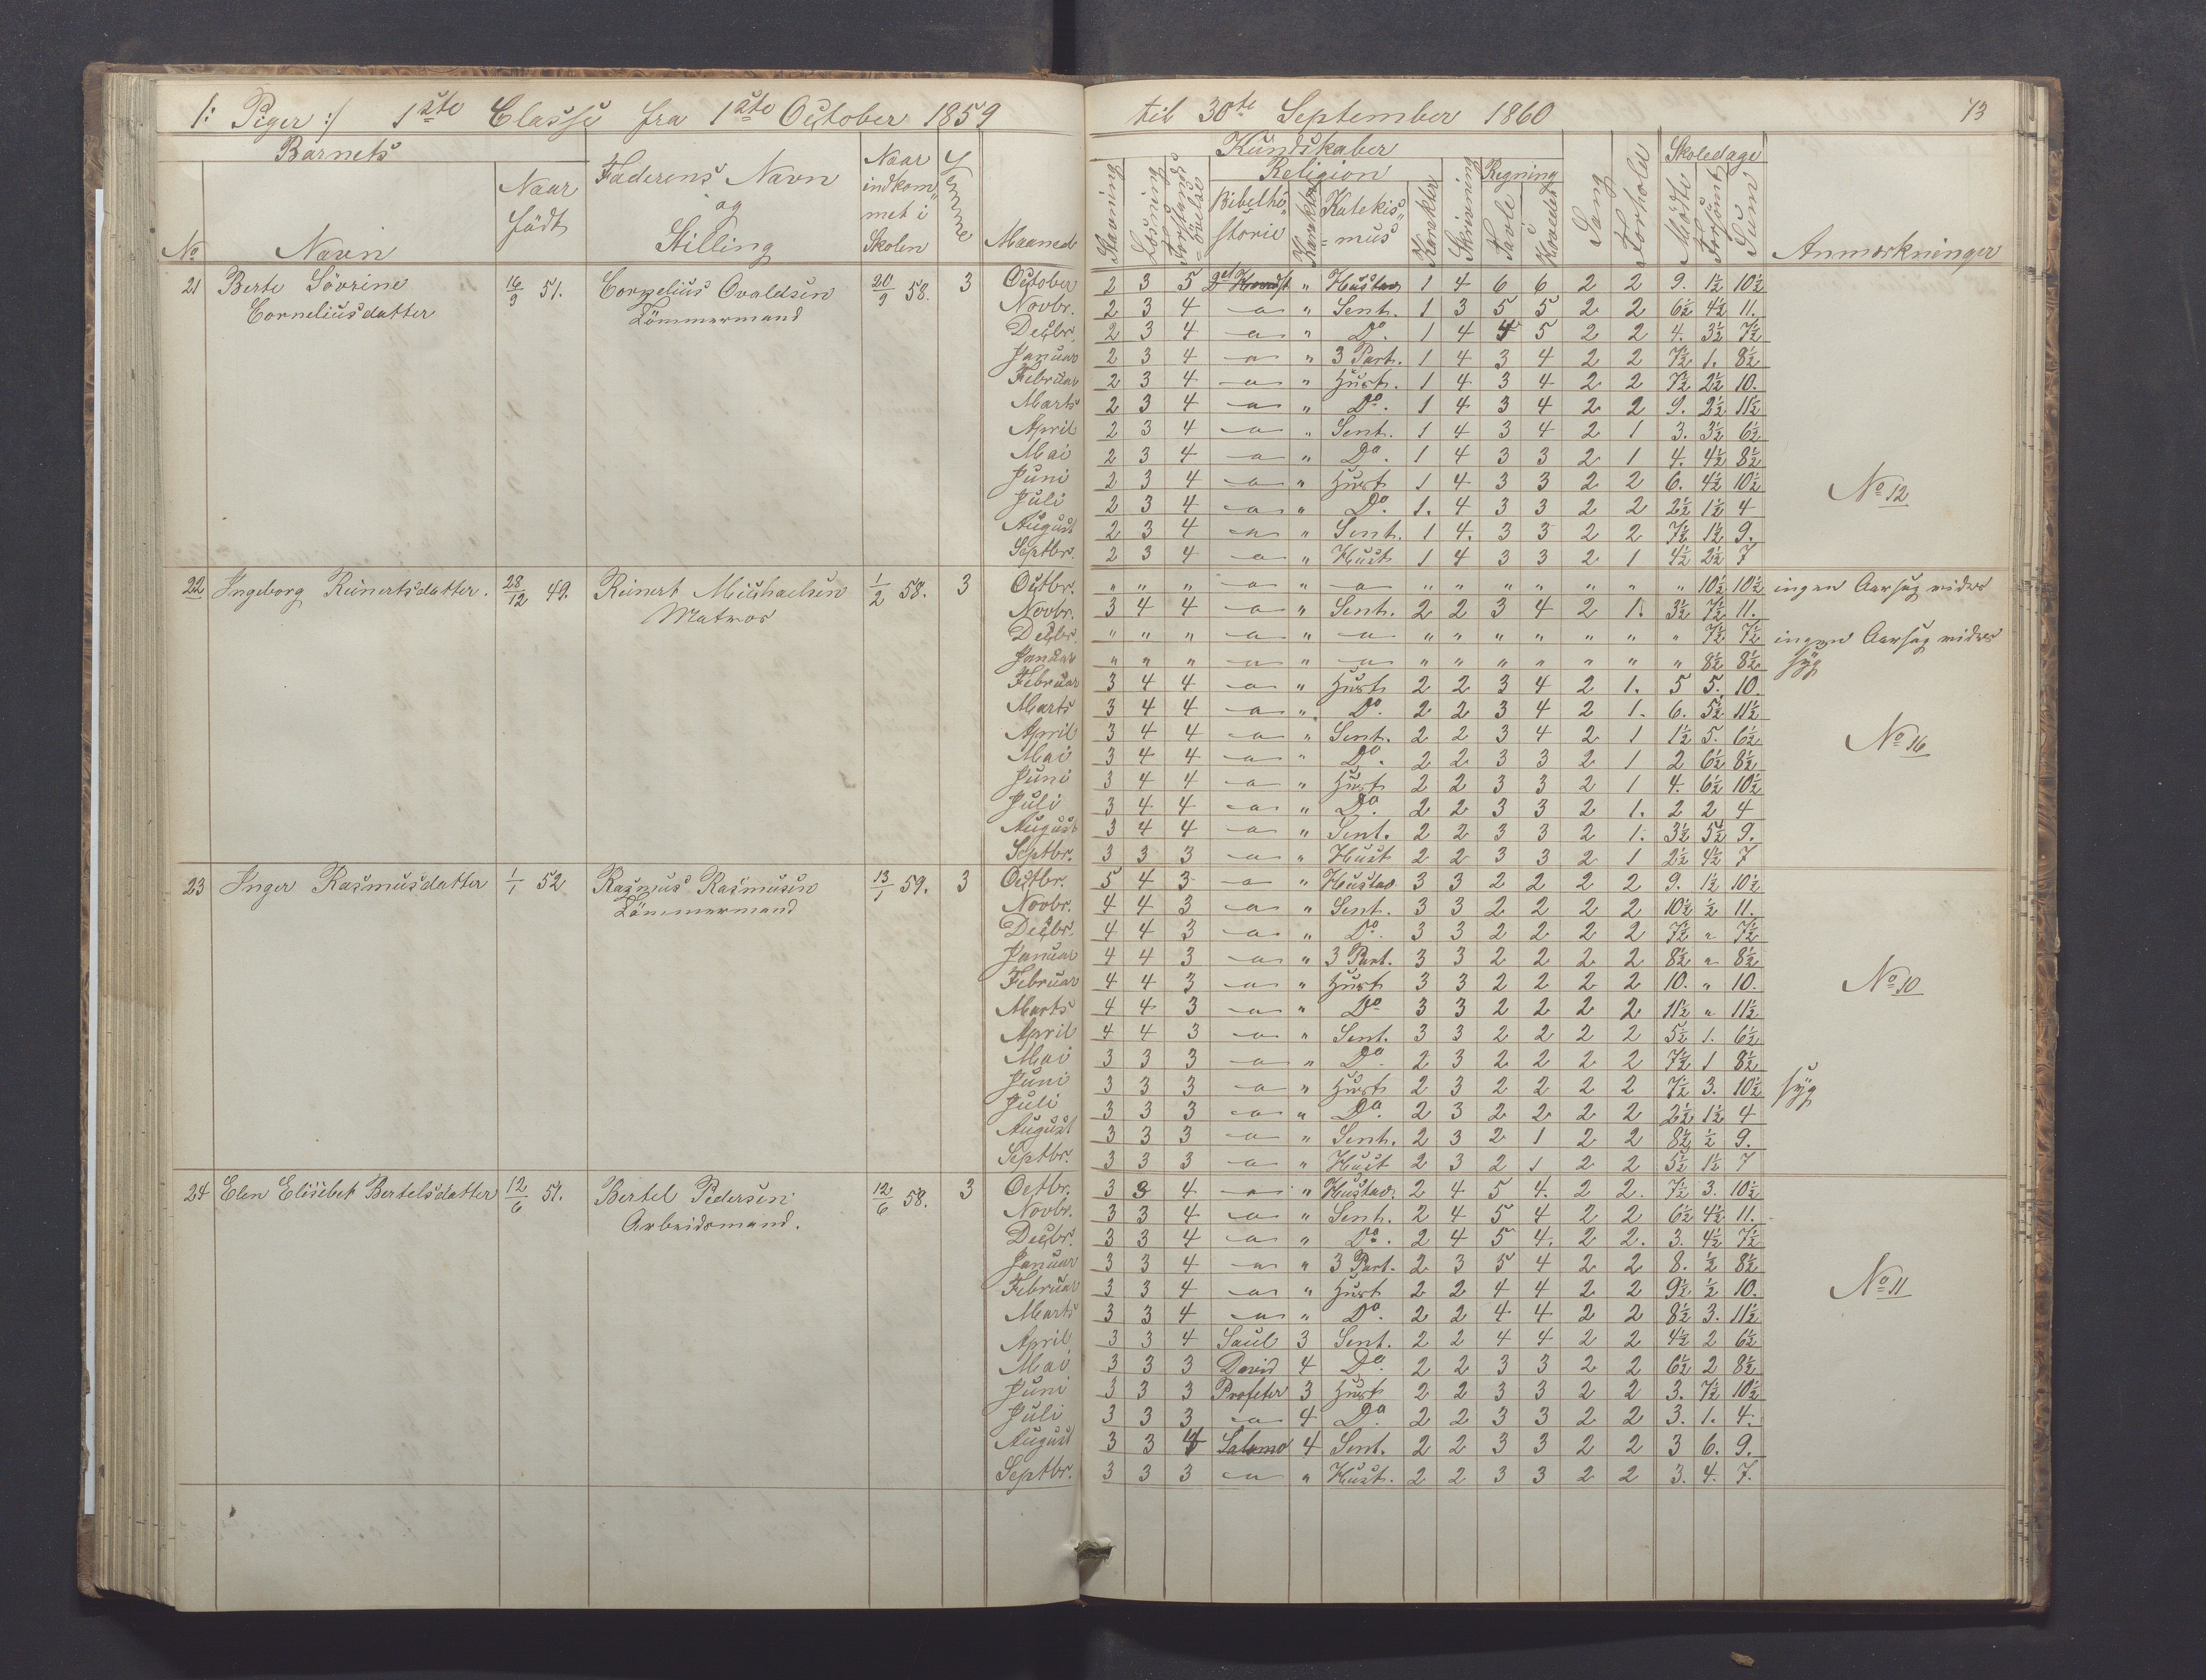 /: Piger :/ 1ste Classe fra 1ste October 1859 til 30te September 1860 13
Barnets
No
Navn
Naar födt
Faderens Navn og Stilling
Naar indkommet i Skolen
Evnne
Maaned
Kundskaber
Stavning
Læsning
Forstands övelse
Religion
Bibelhistorie
Karakter
Katekismus
Karakter
Skrivning
Regning
Tavle
Hovedet
Sang
Forhold
Skoledage
Mödte
Forsömt
Sum
Anmærkninger
21 Berte Sövrine 16/9 51. Cornelius Ovaldsen 20/9 58. 3 October 2 3 5 " Hustav 1 4 6 6 2 2 9. 1½ 10½
Corneliusdatter Tömmermand Novbr. 2 3 4 -a- " Sent. 1 3 5 5 2 2 6½ 4½ 11.
Decbr. 2 3 4 -a- " Do. 1 4 4 5 2 2 4. 3½ 7½
Januar 2 3 4 -a- " 3 Part. 1 4 3 4 2 2 7½ 1. 8½
Februar 2 3 4 -a- " Hust. 1 4 3 4 2 2 7½ 2½ 10.
Marts 2 3 4 -a- " Do. 1 4 3 4 2 2 9. 2½ 11½
April 2 3 4 -a- " Sent. 1 4 3 4 2 1 3. 3½ 6½
Mai 2 3 4 -a- " Do. 1 4 3 3 2 1 4. 4½ 8½
Juni 2 3 4 -a- " Hust 1 4 3 3 2 2 6. 4½ 10½ No 12
Juli 2 3 4 -a- " Do. 1. 4 3 3 2 2 2½ 1½ 4
August 2 3 4 -a- " Sent. 1 4. 3 3 2 2 7½ 1½ 9.
Septbr. 2 3 4 -a- " Hust 1 4 3 3 2 1 4½ 2½ 7
22 Ingeborg Reinertsdatter. 28/12 49. Reinert Michaelsen 1/2 58. 3 Octbr. " " " -a- " -a- " " " " " " " 10½ 10½ ingen Aarsag vides
Matros Novbr. 3 4 4 -a- " Sent. 2 2 3 4 2 1. 3½ 7½ 11.
Decbr. " " " -a- " -a- " " " " " " " 7½ 7½ ingen Aarsag vides
Januar " " " -a- " -a- " " " " " " " 8½ 8½ syg
Februar 3 4 4 -a- " Hust 2 2 3 4 2 1. 5 5. 10.
Marts 3 4 4 -a- " Do. 2 2 3 4 2 1. 6. 5½ 11½
April 3 4 4 -a- " Sent. 2 2 3 4 2 1 1½ 5. 6½ No 16
Mai 3 4 4 -a- " Do. 2 2 3 3 2 1 2 6½ 8½
Juni 3 4 4 -a- " Hust 2 2 3 3 2 1 4. 6½ 10½
Juli 3 4 4 -a- " Do 2 2 3 3 2 1. 2 2 4
August 3 4 4 -a- " Sent. 2 2 3 3 2 1. 3½ 5½ 9.
Septbr. 3 3 3 -a- " Hust 2 2 3 3 2 1 2½ 4½ 7
23 Inger Rasmusdatter 1/1 52 Rasmus Rasmusen 13/1 59. 3 Octbr. 5 4 3 -a- " Hustav 3 3 2 2 2 2 9. 1½ 10½
Tömmermand Novbr. 4 4 3 -a- " Sent. 3 3 2 2 2 2 10½ ½ 11.
Decbr. 4 4 3 -a- " Do. 3 3 2 2 2 2 7½ " 7½
Januar 4 4 3 -a- " 3 Part. 3 3 2 2 2 2 8½ " 8½
Februar 4 4 3 -a- " Hust 3 3 2 2 2 2 10. " 10. No 10
Marts 4 4 3 -a- " Do 3 3 2 2 2 2 11½ " 11½
April 4 4 3 -a- " Sent. 3 3 2 2 2 2 5½ 1. 6½
Mai 3 3 3 -a- " Do 2 3 2 2 2 2 7½ 1 8½
Juni 3 3 3 -a- " Hust 2 3 2 2 2 2 7½ 3. 10½ syg
Juli 3 3 3 -a- " Do. 2 3 2 2 2 2 2½ 1½ 4
August 3 3 3 -a- " Sent. 2 3 2 1 2 2 8½ ½ 9.
Septbr. 3 3 3 -a- " Hust 2 3 2 1 2 2 5½ 1½ 7
24 Elen Elisebet Bertelsdatter 12/6 51. Bertel Pedersen 12/6 58. 3 Octbr. 3 3 4 -a- " Hustav. 2 4 5 4. 2 2. 7½ 3. 10½
Arbeidsmand. Novbr. 3 3 4 -a- " Sent. 2 4 5 4 2 2 6½ 4½ 11.
Decbr. 3 3 4 -a- " Do. 2 4 5 4. 2 2. 3. 4½ 7½
Januar 3 3 4 -a- " 3 Part. 2 3 5 4 2 2 8. ½ 8½
Februar 3 3 4 -a- " Hust 2 2 4 4 2 2 9½ ½ 10. No 11
Marts 3 3 4 -a- " Do. 2 2 4 4 2 2 8½ 3. 11½
April 3 3 4 Saul 3 Sent. 2 2 4 4 2 2 4½ 2 6½
Mai 3 3 3 David 4 Do. 2 2 3 3 2 2 6½ 2 8½
Juni 3 3 3 Profeter 3 Hust 2 2 3 3 2 2 3. 7½ 10½
Juli 3 3 3 -a- 4 Do. 2 2 3 3 2 2 3. 1. 4.
August 3 3 4 Salomo 4 Sent. 2 2 3 3 2 2 3 6. 9.
Septbr. 3 3 3 -a- " Hust. 2 2 3 3 2 2 3. 4. 7.